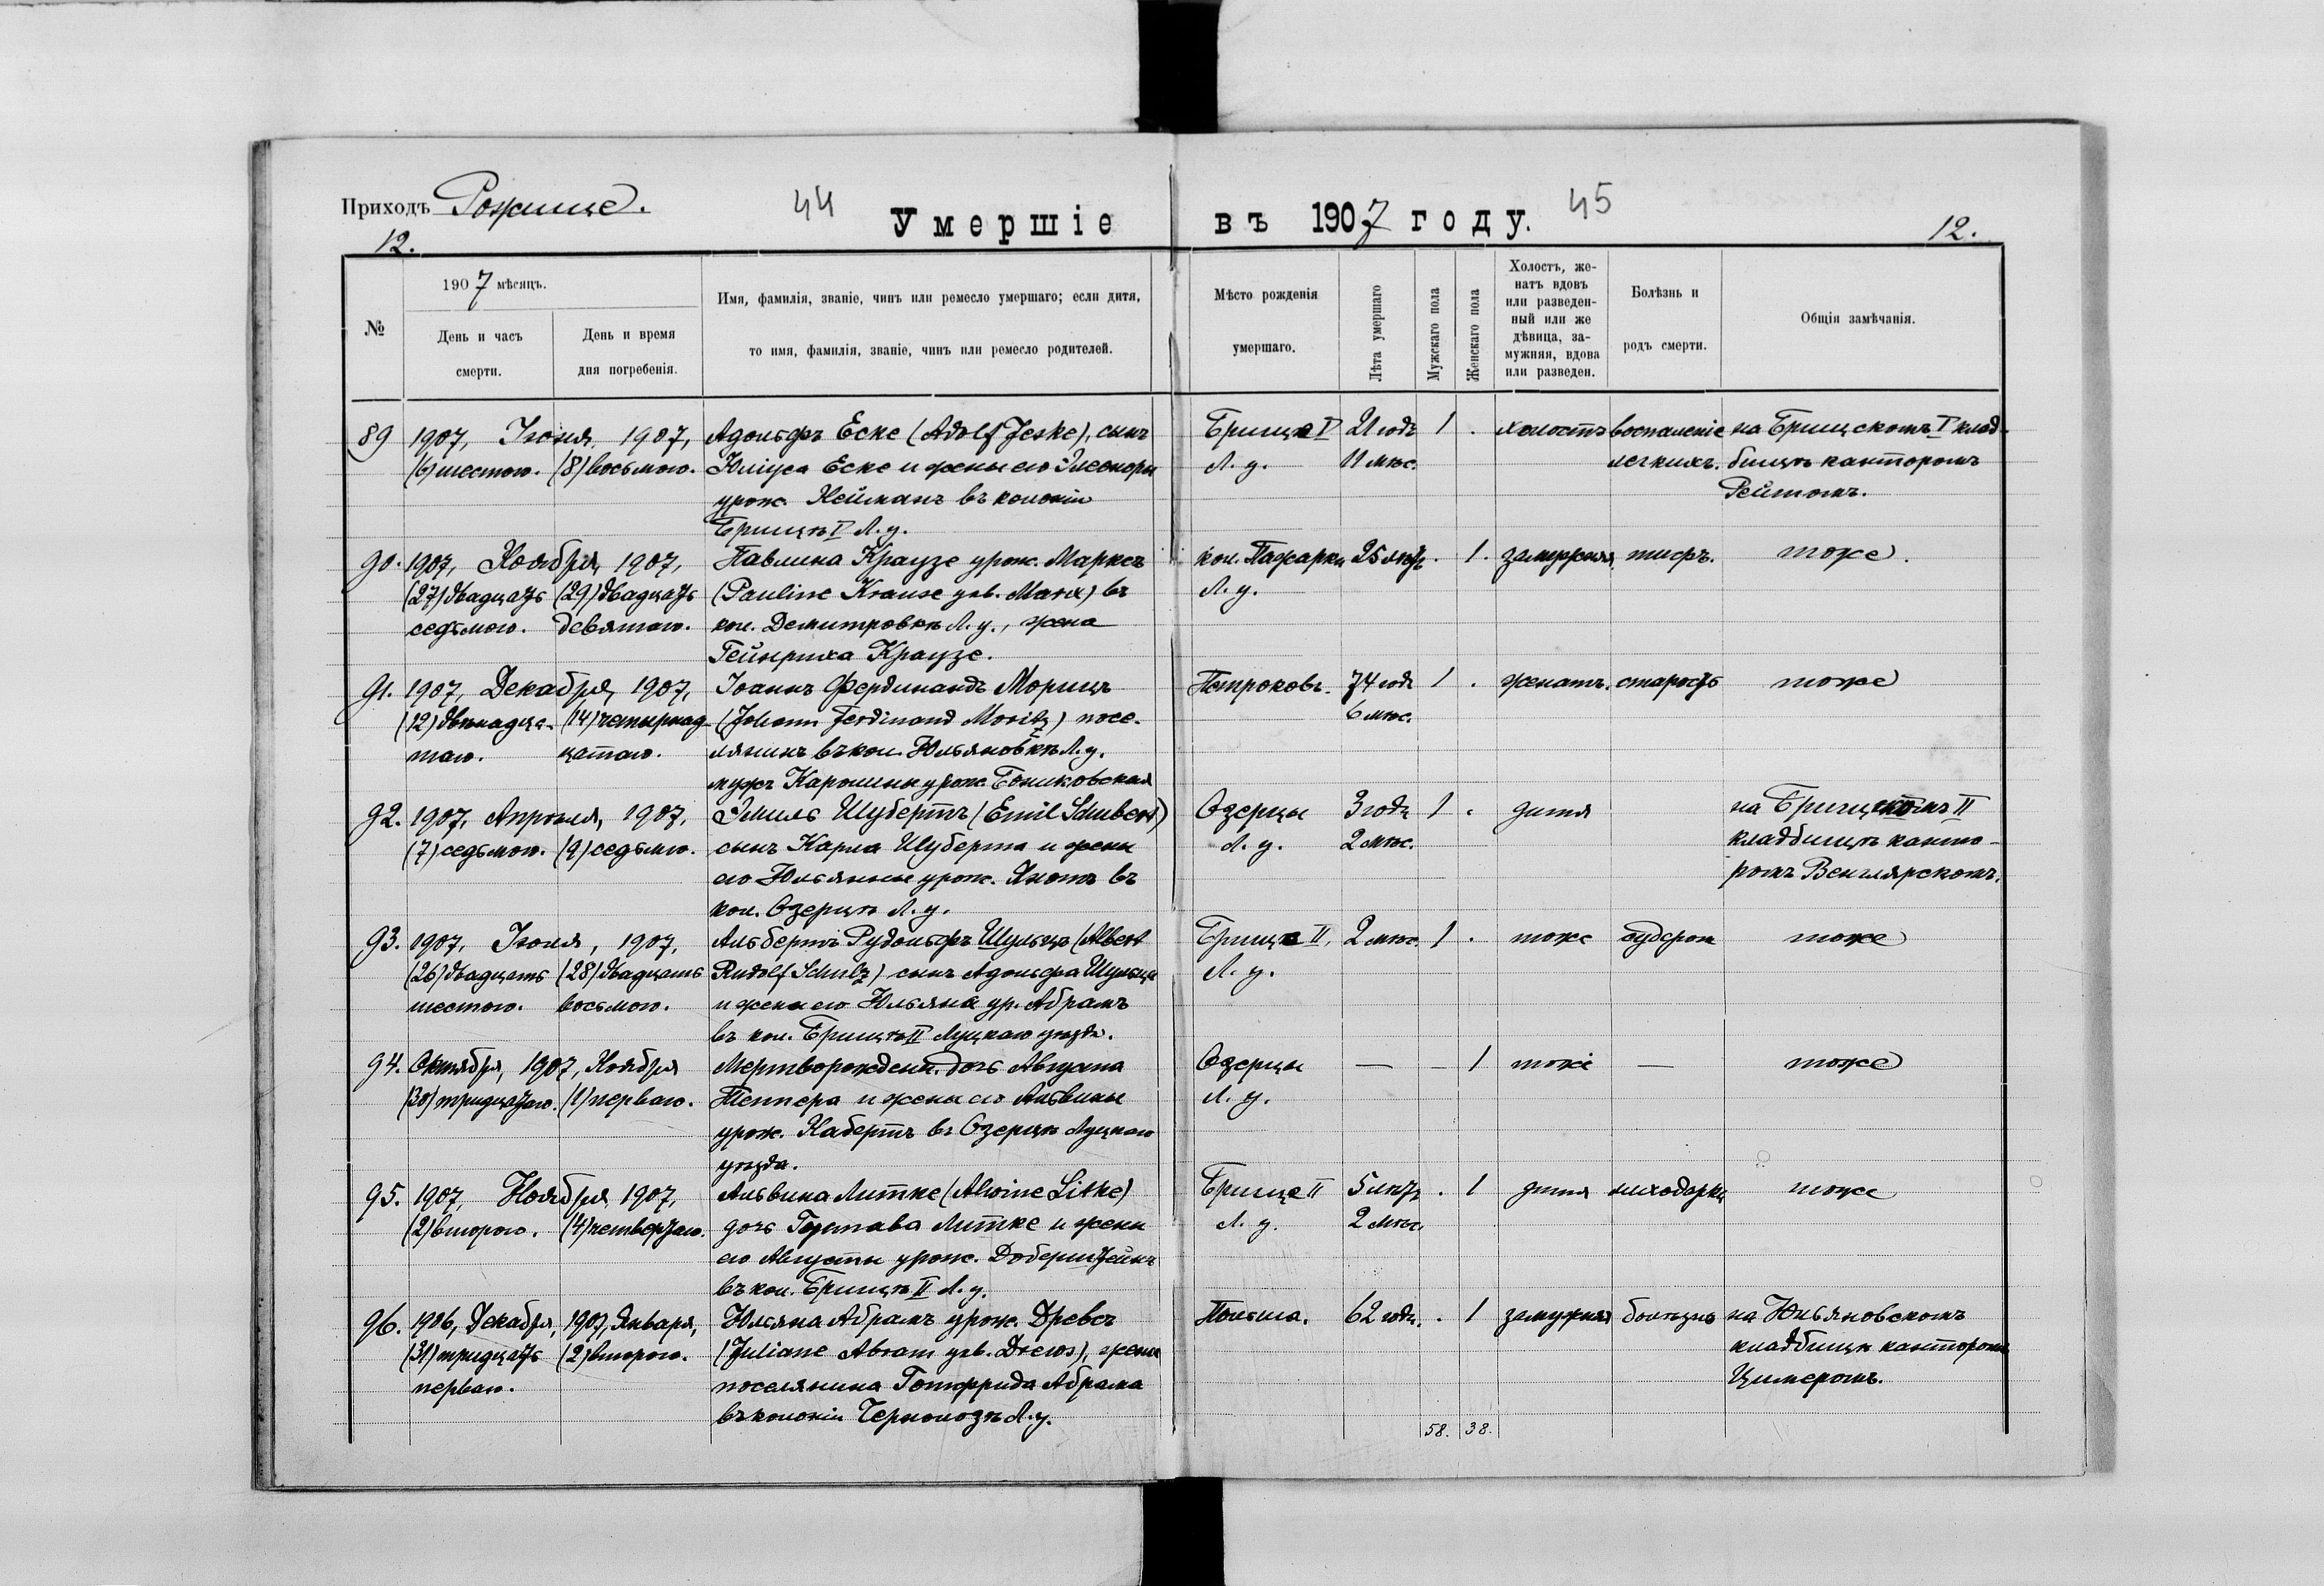 Приходъ Рожище.
44
Умершіе
въ 1907 году.
45
12.
12.
№
1907 мѣсяцъ.
День и часъ смерти.
День и время дня погребенія.
Имя, фамилія, званіе, чинъ или ремесло умершаго; если дитя,
то имя, фамилія, званіе, чинъ или ремесло родителей.
Мѣсто рожденія
умершаго.
Лѣта умершаго
Мужскаго пола
Женскаго пола
Холостъ, же-
натъ вдовъ
или разведен-
ный или же
дѣвица, за-
мужняя, вдова
или разведен.
Болѣзнь и
родъ смерти.
Общія замѣчанія.
89 1907, Іюня, 1907, Адольфъ Еске (Adolf Jeske), сынъ Брище I 21 годъ 1 . холостъ воспаленіе на Брищскомъ I клад-
(6) шестого. (8) восьмого. Юліуса Еске и жены его Элеоноры Л. у. 11 мѣс. легкихъ. бищѣ канторомъ
урож. Нейманъ въ колоніи Рейтомъ.
Брищѣ I Л. у.
90. 1907, Ноября, 1907, Павлина Краузе урож. Марксъ кол. Пожарки 25 лѣтъ . 1. замужняя. тифъ. тоже.
(27) двадцать (29) двадцать (Pauline Krause geb. Marx) въ Л. у.
седьмого. девятаго. кол. Демитровкѣ Л. у., жена
Гейнриха Краузе.
91. 1907, Декабря, 1907, Іоаннъ Фердинандъ Морицъ Петроковъ. 74 годъ 1 . женатъ. старость тоже
(12) двѣнадца- (14) четырнад- (Johann Ferdinand Moritz) посе- 6 мѣс.
таго. цатаго. лянинъ въ кол. Юльяновкѣ Л. у.
мужъ Каролины урож. Бониковская
92. 1907, Апрѣля, 1907, Эмиль Шубертъ (Emil Schubert) Озерцы 3 годъ 1 . дитя на Брищскомъ II
(7) седьмого. (9) седьмого. сынъ Карла Шуберта и жены Л. у. 2 мѣс. кладбищѣ канто-
его Юльянны урож. Янотъ въ ромъ Венглярскомъ.
кол. Озерцѣ Л. у.
93. 1907, Іюня, 1907, Альбертъ Рудольфъ Шульцъ (Albert Брище II, 2 мѣс. 1 . тоже тоже
(26) двадцать (28) двадцать Rudolf Schulz) сынъ Адольфа Шульца Л. у.
шестого. восьмого. и жены его Юльяна ур. Абрамъ
въ кол. Брищѣ II Луцкаго уѣзда.
94. Октября, 1907, Ноября Мертворожден. дочь Августа Озерцы — – 1 тоже — тоже
(30) тридцатаго. (1) перваго. Теппера и жены его Альвины Л. у.
урож. Набертъ въ Озерцѣ Луцкаго
уѣзда.
95. 1907, Ноября, 1907, Альвина Литке (Alwine Litke) Брище II 5 лѣтъ . 1 дитя лиходарка тоже
(2) второго. (4) четвертаго. дочь Густава Литке и жены Л. у. 2 мѣс.
его Августы урож. Доберштейнъ
въ кол. Брищѣ II Л. у.
96. 1906, Декабря, 1907, Января, Юльяна Абрамъ урож. Древсъ Польша. 62 года. . 1 замужняя болѣзнь на Юльяновскомъ
(31) тридцать (2) второго. (Juliane Abram geb. Drews), жена кладбищѣ канторомъ
перваго. поселянина Готфрида Абрама Цимеромъ.
въ колоніи Чернолозѣ Л. у.
58. 38.